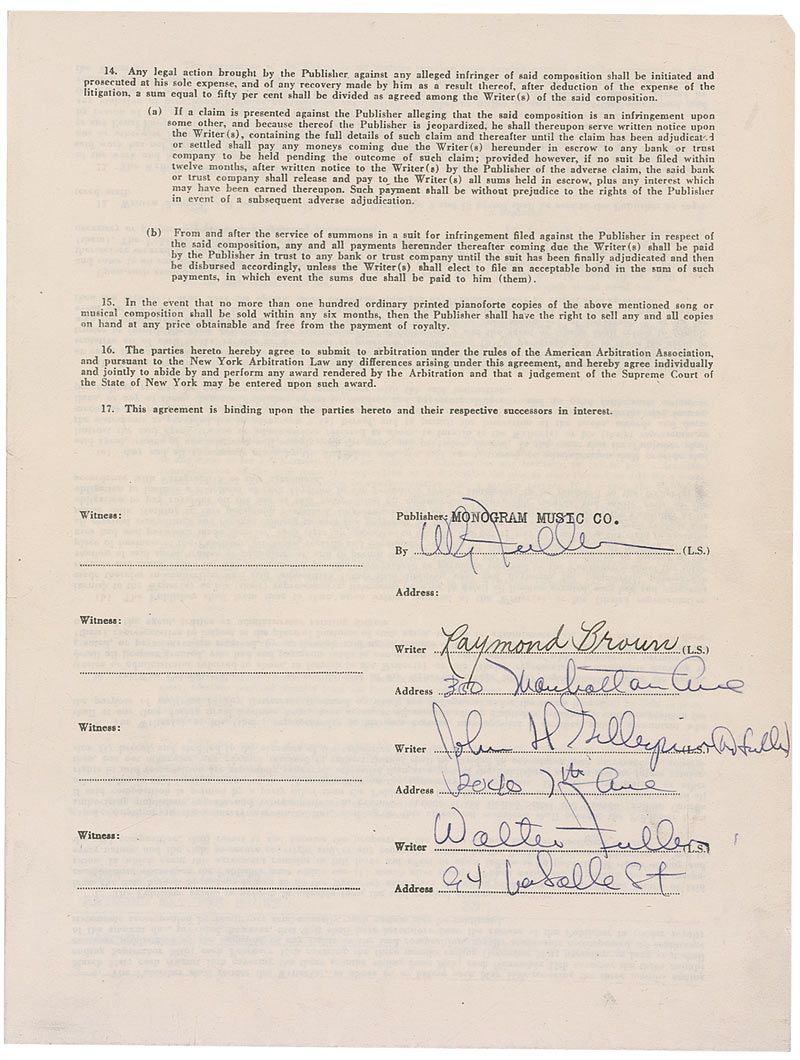 14. Any legal action brought by the Publisher against any alleged infringer of said composition shall be initiated and
prosecuted at his sole expense, and of any recovery made by him as a result thereof, after deduction of the expense of the
litigation, a sum equal to fifty per cent shall be divided as agreed among the Writer(s) of the said composition.
(a) If a claim is presented against the Publisher alleging that the said composition is an infringement upon
some other, and because thereof the Publisher is jeopardized, he shall thereupon serve written notice upon
the Writer(s), containing the full details of such claim and thereafter until the claim has been adjudicated
or settled shall pay any moneys coming due the Writer(s) hereunder in escrow to any bank or trust
company to be held pending the outcome of such claim; provided however, if no suit be filed within
twelve months, after written notice to the Writer(s) by the Publisher of the adverse claim, the said bank
or trust company shall release and pay to the Writer(s) all sums held in escrow, plus any interest which
may have been earned thereupon. Such payment shall be without prejudice to the rights of the Publisher
in event of a subsequent adverse adjudication.
(b) From and after the service of summons in a suit for infringement filed against the Publisher in respect of
the said composition, any and all payments hereunder thereafter coming due the Writer(s) shall be paid
by the Publisher in trust to any bank or trust company until the suit has been finally adjudicated and then
be disbursed accordingly, unless the Writer(s) shall elect to file an acceptable bond in the sum of such
payments, in which event the sums due shall be paid to him (them).
15. In the event that no more than one hundred ordinary printed pianoforte copies of the above mentioned song or
musical composition shall be sold within any six months, then the Publisher shall have the right to sell any and all copies
on hand at any price obtainable and free from the payment of royalty.
16. The parties hereto hereby agree to submit to arbitration under the rules of the American Arbitration Association,
and pursuant to the New York Arbitration Law any differences arising under this agreement, and hereby agree individually
and jointly to abide by and perform any award rendered by the Arbitration and that a judgement of the Supreme Court of
the State of New York may be entered upon such award.
17. This agreement is binding upon the parties hereto and their respective successors in interest.
Witness:
Publisher: MONOGRAM MUSIC CO.
By W Fuller (L.S.)
Address:
Witness:
Writer Raymond Brown (L.S.)
Address 300 Manhattan Ave
Witness:
Writer John H Gillespie (L.S.) (W Fuller)
Address 2040 7th Ave
Witness:
Writer Walter Fuller (L.S.)
Address 94 LaSalle St